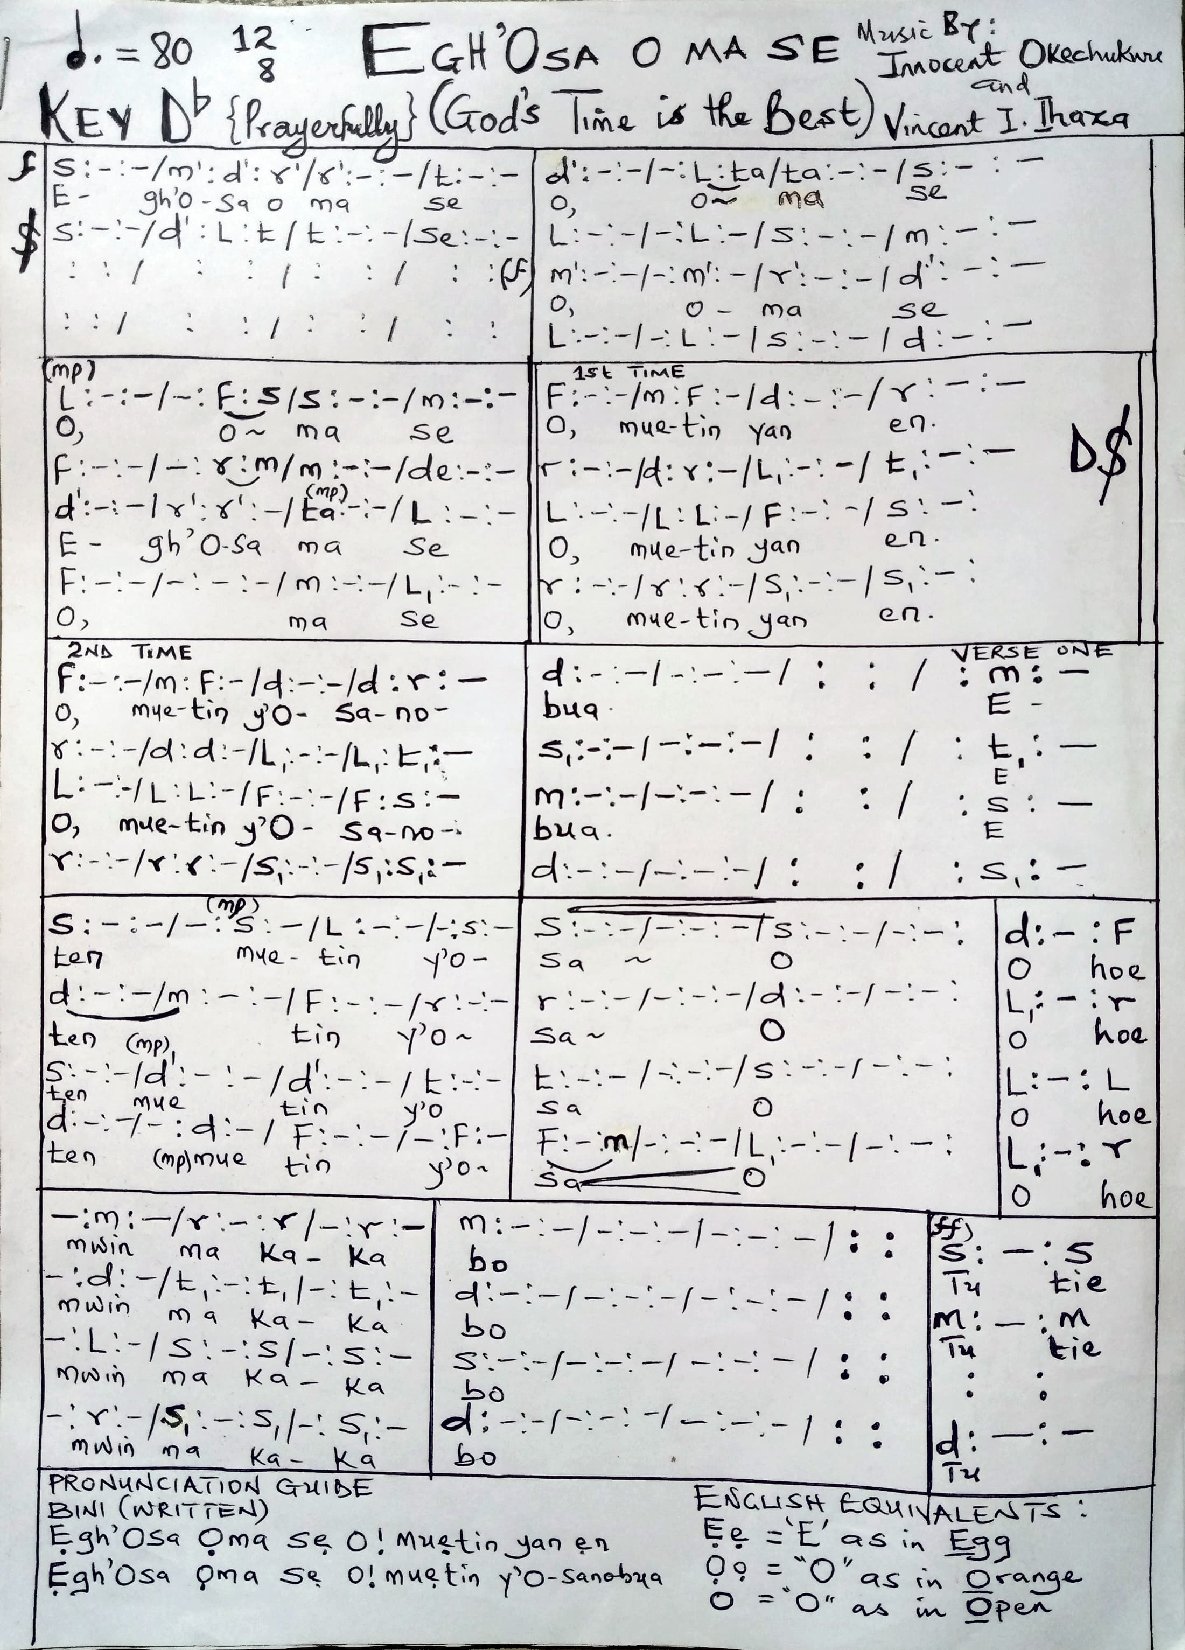 ♩. = 80 12/8 EGH'OSA O MA SE Music By: Innocent Okechukwu and
KEY D♭ {Prayerfully} (God's Time is the Best) Vincent I. Ihaza
f s:-:-/m':d':r'/r':-:-/t:-:-
E- gh'O-sa o ma se
$ s:-:-/d':L:t/t:-:-/se:-:-
: : / : : / : : / : : (f)
: : / : : / : : / : :
d':-:-/-:L:ta/ta:-:-/s:-:-
O, O~ ma se
L:-:-/-:L:-/s:-:-/m:-:-
m':-:-/-:m':-/r':-:-/d':-:-
O, O- ma se
L:-:-/-:L:-/s:-:-/d:-:-
(mp)
L:-:-/-:F:s/s:-:-/m:-:-
O, O~ ma se
F:-:-/-:r:m/m:-:-/de:-:-
(mp)
d':-:-/r':r':-/ta:-:-/L:-:-
E- gh'O-sa ma se
F:-:-/-:-:-/m:-:-/L,:-:-
O, ma se
1st TIME
F:-:-/m:F:-/d:-:-/r:-:-
O, mue-tin yan en.
r:-:-/d:r:-/L,:-:-/t,:-:-
D$
L:-:-/L:L:-/F:-:-/s:-:
O, mue-tin yan en.
r:-:-/r:r:-/s,:-:-/s,:-:
O, mue-tin yan en.
2ND TIME
F:-:-/m:F:-/d:-:-/d:r:-
O, mue-tin y'O- sa-no-
r:-:-/d:d:-/L,:-:-/L,:t,:-
L:-:-/L:L:-/F:-:-/F:s:-
O, mue-tin y'O- sa-no-
r:-:-/r:r:-/s,:-:-/s,:s,:-
VERSE ONE
d:-:-/-:-:-/ : : / :m:-
bua. E-
s,:-:-/-:-:-/ : : / :t,:-
E
m:-:-/-:-:-/ : : / :s:-
bua. E
d:-:-/-:-:-/ : : / :s,:-
(mp)
s:-:-/-:s:-/L:-:-/-:s:-
ten mue- tin y'O-
d:-:-/m:-:-/F:-:-/r:-:-
ten (mp) tin y'O~
s:-:-/d':-:-/d':-:-/t:-:-
ten mue tin y'O
d:-:-/-:d:-/F:-:-/-:F:-
ten (mp)mue tin y'O~
s:-:-/-:-:-/s:-:-/-:-:
sa ~ O
r:-:-/-:-:-/d:-:-/-:-:
sa~ O
t:-:-/-:-:-/s:-:-/-:-:
sa O
F:-:m/-:-:-/L,:-:-/-:-:
sa O
d:-:F
O hoe
L,:-:r
O hoe
L:-:L
O hoe
L,:-:r
O hoe
-:m:-/r:-:r/-:r:-
mwin ma Ka- Ka
-:d:-/t,:-:t,/-:t,:-
mwin ma Ka- Ka
-:L:-/s:-:s/-:s:-
mwin ma Ka- Ka
-:r:-/s,:-:s,/-:s,:-
mwin ma Ka- Ka
m:-:-/-:-:-/-:-:-/: :
bo
d:-:-/-:-:-/-:-:-/: :
bo
s:-:-/-:-:-/-:-:-/: :
bo
d:-:-/-:-:-/-:-:-/: :
bo
ff)
s:-:s
Tu tie
m:-:m
Tu tie
: :
d:-:-
Tu
PRONUNCIATION GUIDE
BINI (WRITTEN)
Ẹgh'Osa Ọma sẹ O! Muẹtin yan ẹn
Ẹgh'Osa ọma sẹ O! muẹtin y'O-sanobua
ENGLISH EQUIVALENTS:
Ẹẹ = 'E' as in Egg
Ọọ = "O" as in Orange
O = "O" as in Open